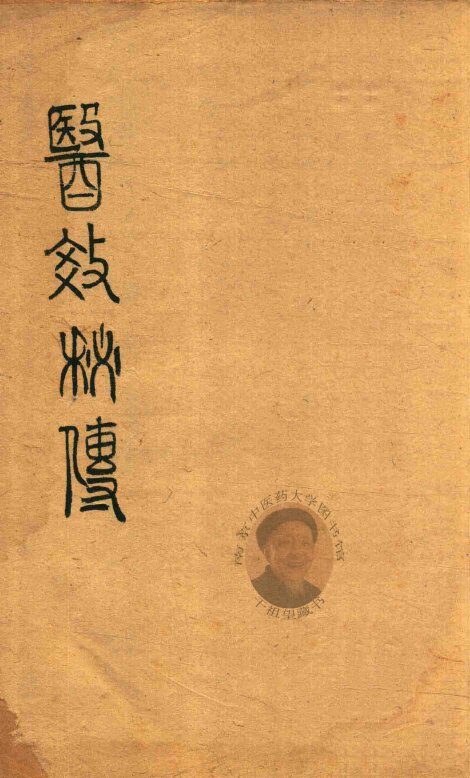 醫效秘傳
南京中医药大学图书馆
干祖望藏书